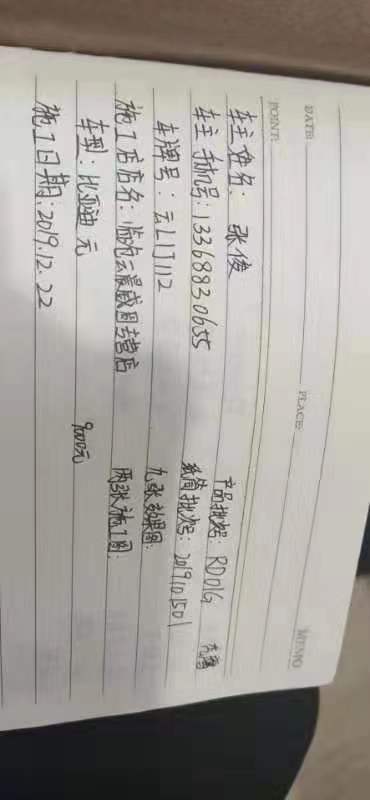 DATE: PLACE: MEMO
POINT:
车主姓名: 张俊 产品批次: RD01G
车主手机号: 13368830655 纸筒批次号: 2019101501
车牌号: 云L1J112 九张效果图:
施工店店名: 临沧云晟威固专营店 两张施工图:
车型: 比亚迪 元 9000元
施工日期: 2019.12.22